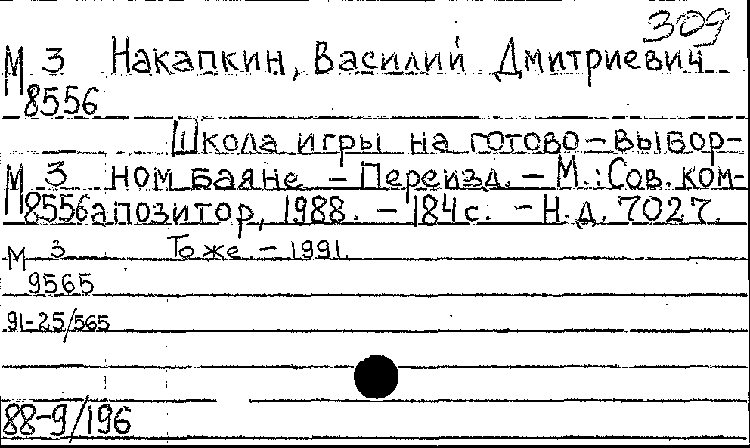 309
М 3 Накапкин, Василий Дмитриевич
8556
Школа игры на готово-выбор-
М 3 ном баяне. - Переизд. - М.: Сов. ком-
8556а позитор, 1988. - 184 с. - Н.д. 7027.
М 3 То же. - 1991.
9565
91-25/565
88-9/196